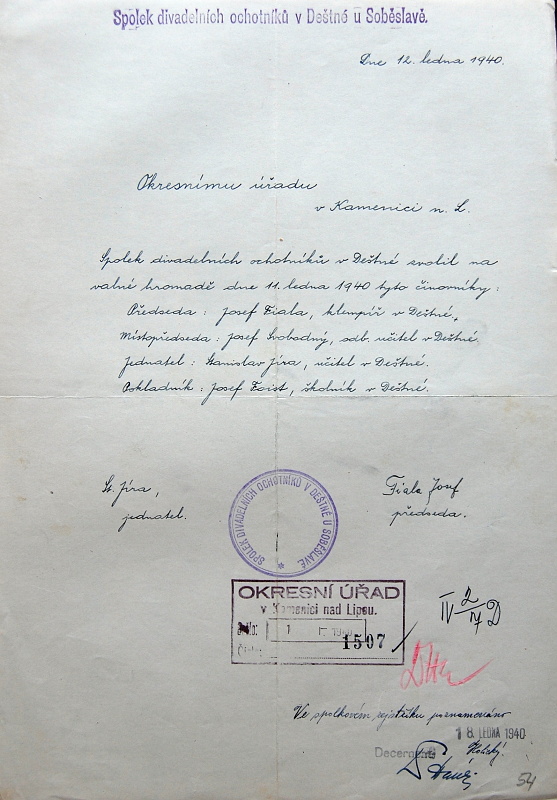 Spolek divadelních ochotníků v Deštné u Soběslavě.
Dne 12. ledna 1940.
Okresnímu úřadu
v Kamenici n. L.
Spolek divadelních ochotníků v Deštné zvolil na
valné hromadě dne 11. ledna 1940 tyto činovníky:
Předseda: Josef Fiala, klempíř v Deštné,
Místopředseda: Josef Svobodný, odb. učitel v Deštné
Jednatel: Stanislav Jíra, učitel v Deštné.
Pokladník: Josef Foist, školník v Deštné.
St. Jíra, Fiala Josef
jednatel. předseda.
SPOLEK DIVADELNÍCH OCHOTNÍKŮ V DEŠTNÉ U SOBĚSLAVĚ. *
OKRESNÍ ÚŘAD
v Kamenici nad Lipou.
1507
IV 2/7 D
Ve spolkovém rejstříku poznamenáno
18. LEDNA 1940
54